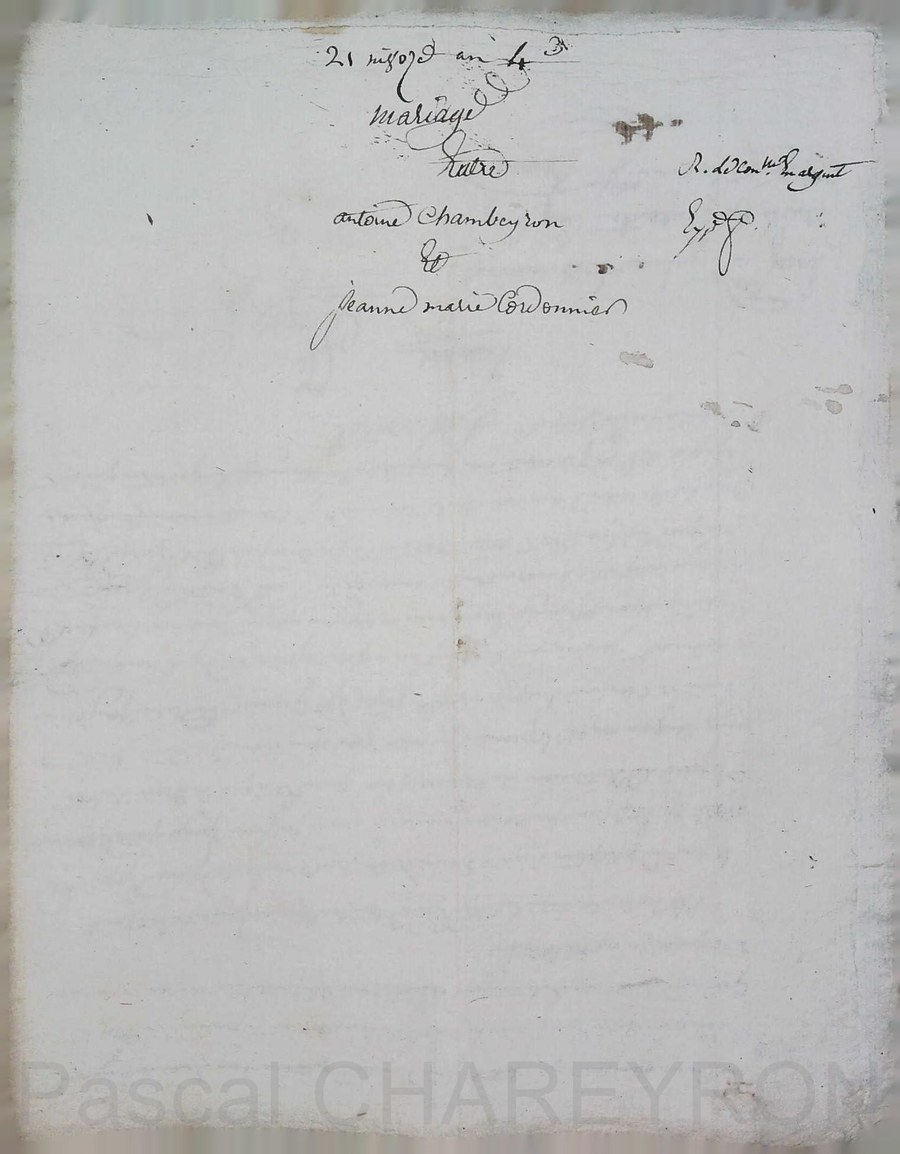 21 nivose an 4e
mariage
Entre
antoine Chambeyron
Et
jeanne marie Cordonnier
Expé
Pascal CHAREYRON